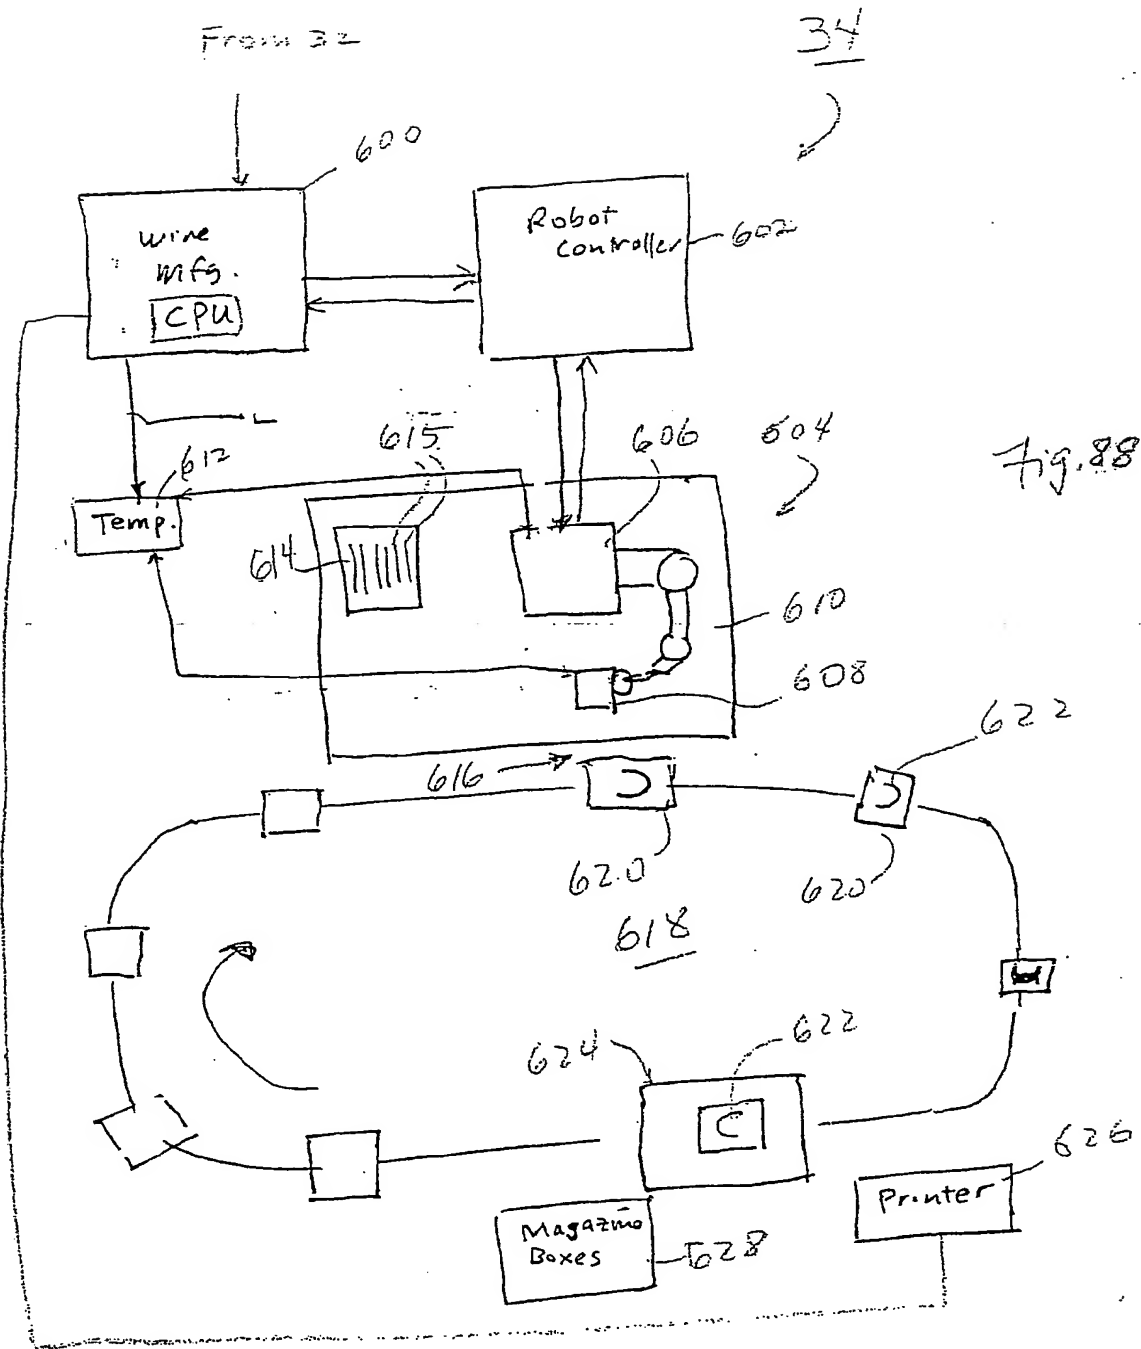 From 32
34
600
Wire
Mfg.
CPU
Robot
Controller
602
L
612
Temp.
615
606
604
Fig. 88
614
610
608
616
622
620
620
618
624
622
626
Printer
Magazine
Boxes
628